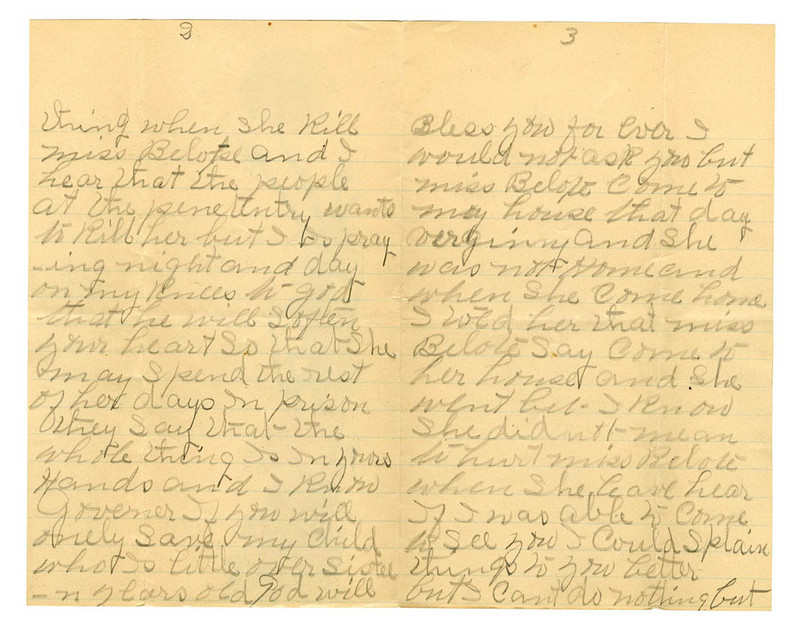 2
thing when She Kill
miss Belote and I
hear that the people
at the penetentry wants
to Kill her but I is pray
-ing night and day
on my knees to god
that he will Soften
your heart So that She
may Spend the rest
of her days In prison
they Say that the
whole thing Is In yours
Hands and I Know
Govener If you will
onely Save my child
who Is little over sistee
-n years old god will
3
Bless you for ever I
would not ask you but
miss Belote Come to
my house that day
verginny and She
was not Home and
when She Come home
I told her that miss
Belote Say Come to
her house and She
went but I Know
She did not mean
to hurt miss Belote
when She leave hear
If I was able to Come
to See you I Could Splain
things to you better
but I Cant do nothing but